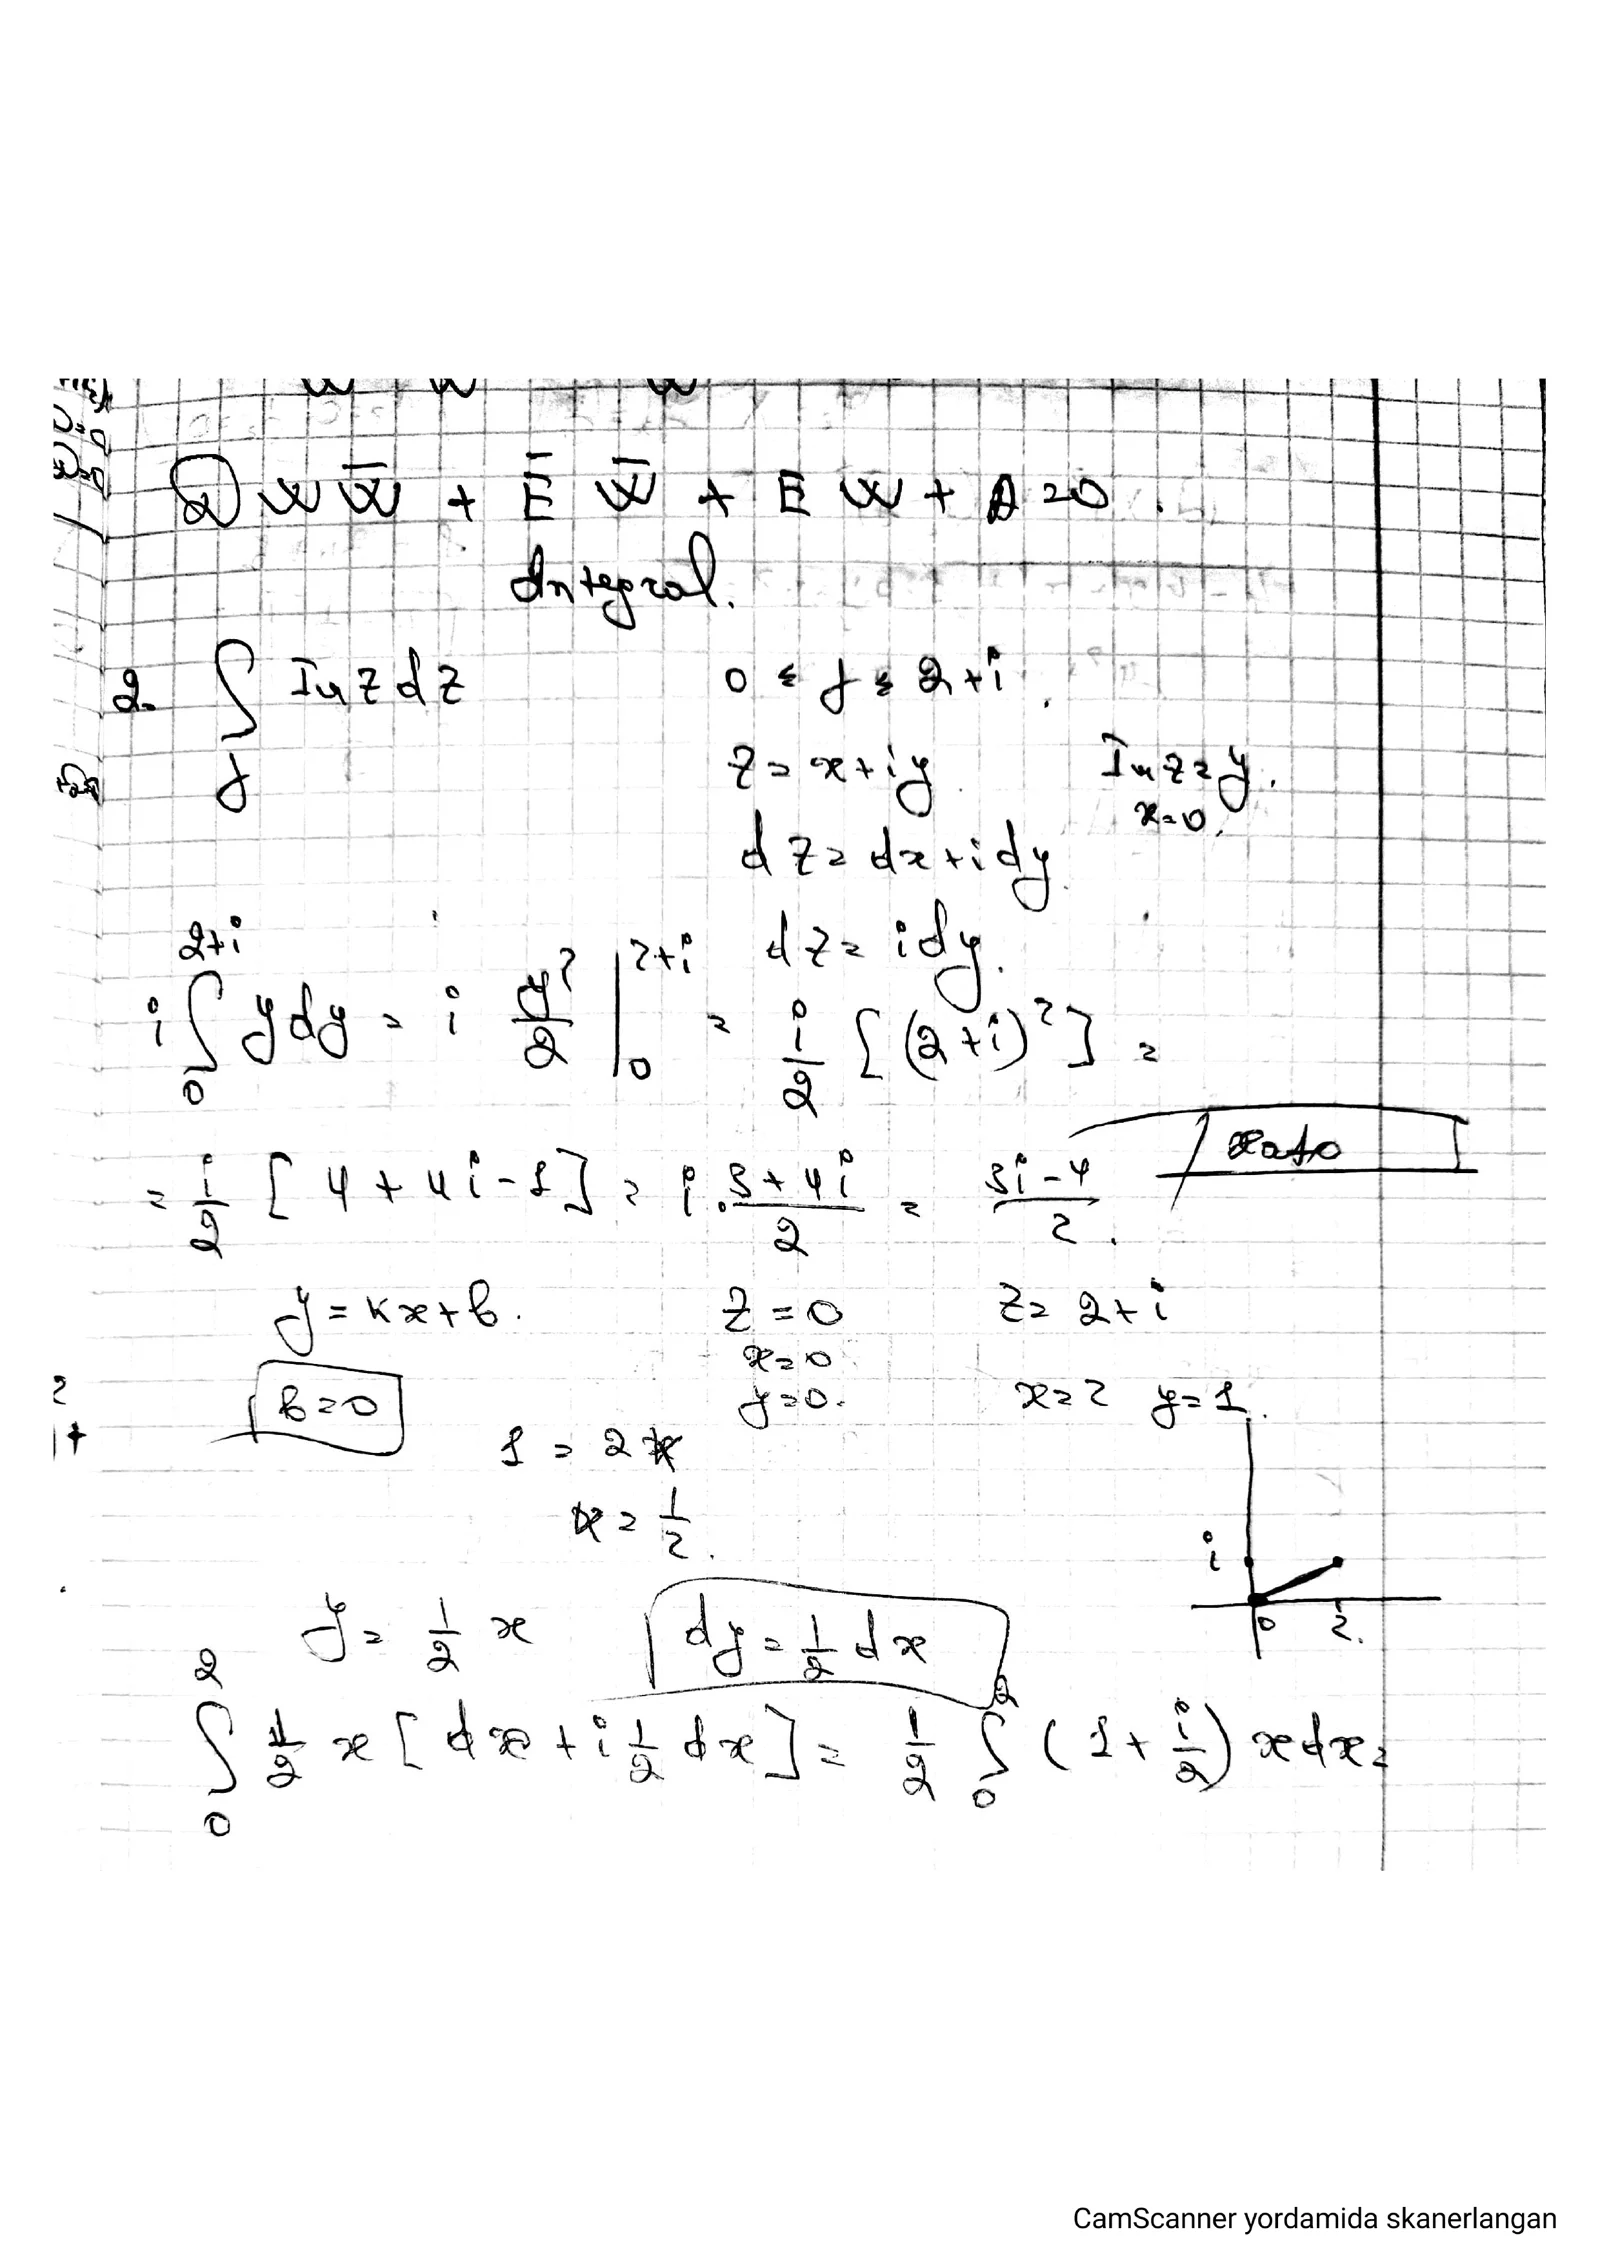 D w w̄ + Ē w̄ + E w + A = 0.
Integral.
2. ∫ Im z dz 0 ≤ γ ≤ 2+i.
γ
z = x+iy Im z = y.
x=0.
dz = dx+idy
dz = idy.
i ∫₀²⁺ⁱ y dy = i y²/2 |₀²⁺ⁱ = i/2 [(2+i)²] =
= i/2 [4+4i-1] = i·3+4i/2 = 3i-4/2. xato
y = kx+b. z=0 z=2+i
x=0
b=0 y=0. x=2 y=1.
1 = 2k
k = 1/2.
i
0 2.
y = 1/2 x dy = 1/2 dx
∫₀² 1/2 x [dx + i 1/2 dx] = 1/2 ∫₀² (1+i/2) x dx =
CamScanner yordamida skanerlangan